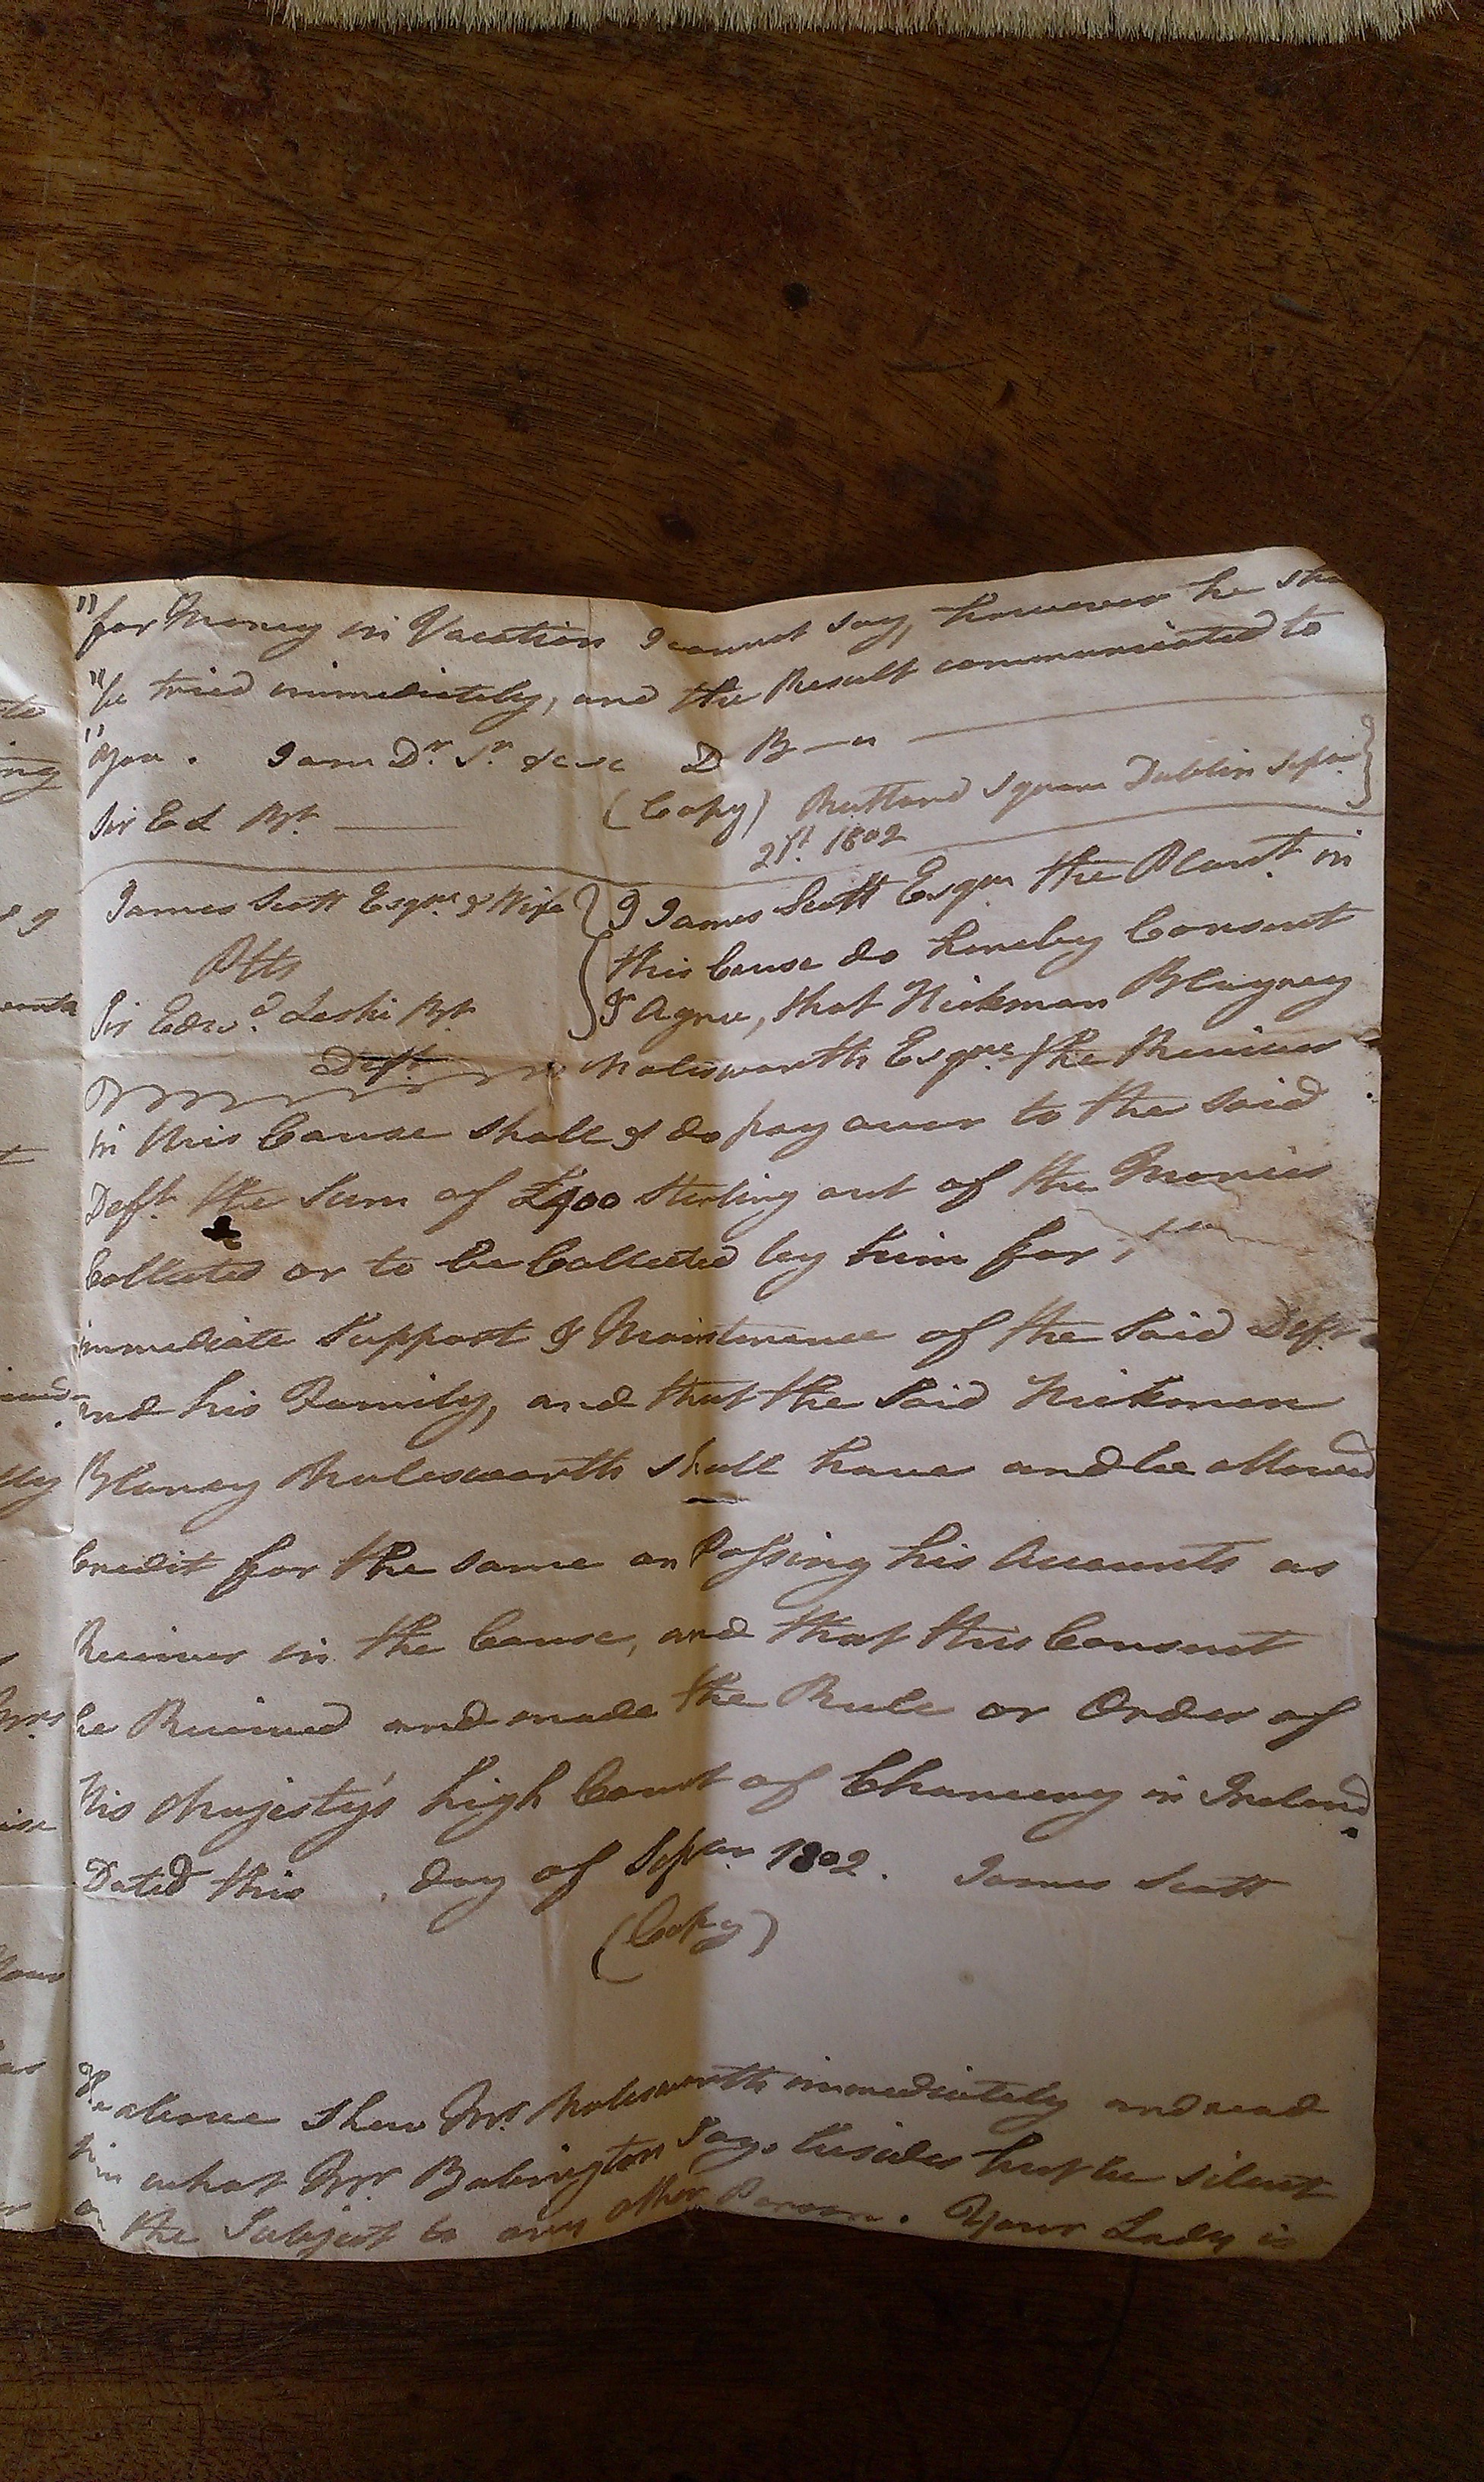 "for Money in Vacation I cannot say, however he
"be tried immediately, and the Result communicated to
"You. I am Dr. Sr. &c &c D B—n
Sir E L Bt. (Copy) Rutland Square Dublin Sepr.
21st. 1802
James Scott Esqre. & Wife
Plts
Sir Edwd. Leslie Bt.
Deft.
I James Scott Esqre. the Plant. in
this Cause do hereby Consent
& Agree, that Hickman Blayney
Molesworth Esqre. the Receiver
in this Cause shall & do pay over to the said
Deft. the Sum of £400 Sterling out of the Monies
Collected or to be Collected by him for
immediate Support & Maintenance of the Said Deft.
and his Family, and that the Said Hickman
Blaney Molesworth shall have and be allowed
Credit for the same on Passing his Accounts as
Receiver in the Cause, and that this Consent
be Received and made the Rule or Order of
His Majesty's high Court of Chancery in Ireland.
Dated this day of Sepber 1802. James Scott
(Copy)
The above shew Mr. Molesworth immediately and read
him what Mr. Babington Says besides but be silent
on the Subject to any other Person. Your Lady is